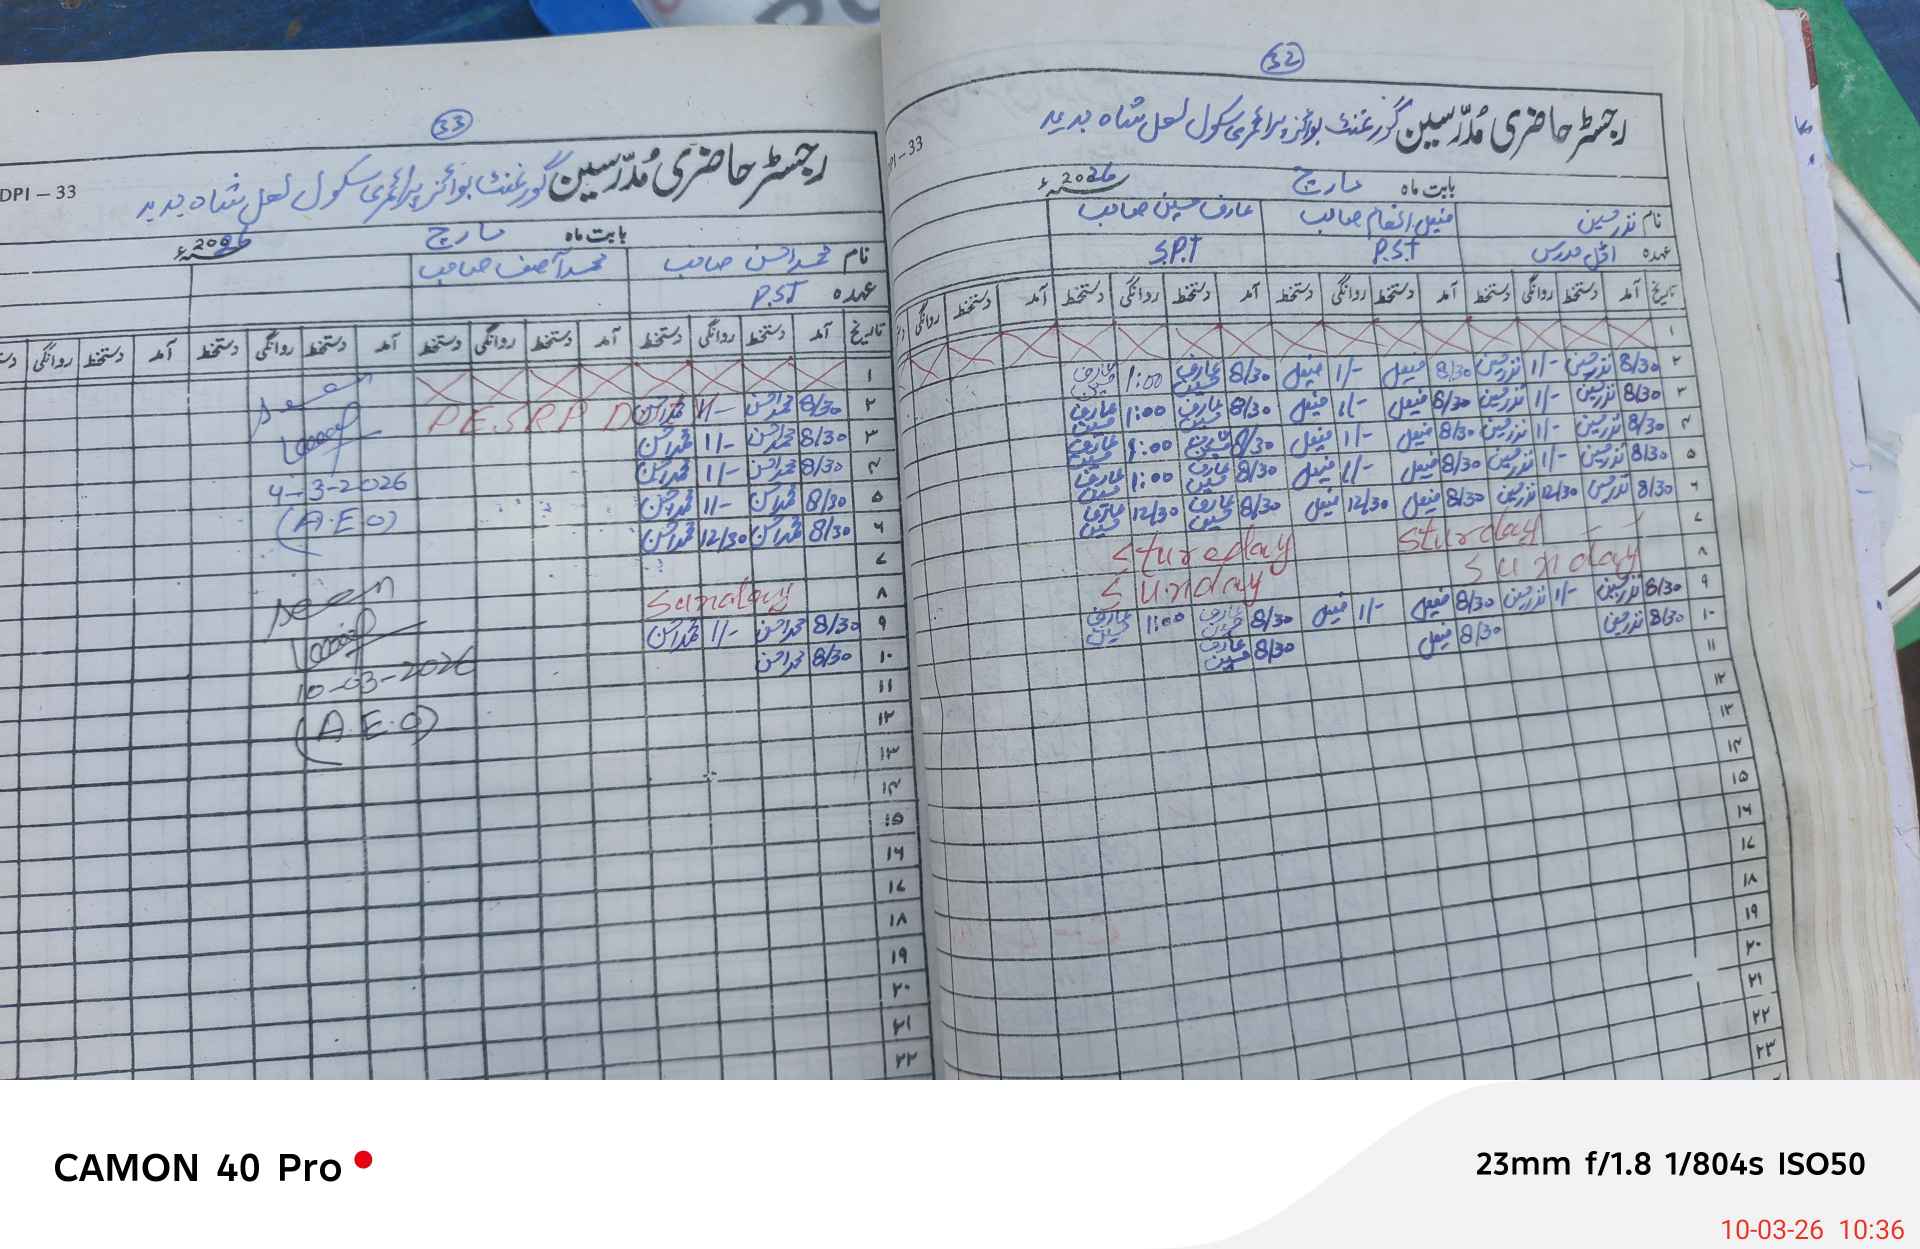 32
رجسٹر حاضری مُدرّسین گورنمنٹ بوائز پرائمری سکول لعل شاہ جدید
بابت ماہ مارچ 2026ء
نام نذر حسین عارف حسین صاحب
عہدہ اوّل مدرس P.S.T S.P.T
تاریخ آمد دستخط روانگی دستخط آمد دستخط روانگی دستخط آمد دستخط روانگی دستخط آمد دستخط روانگی
۱
۲ 8/30 نذر حسین 1/- نذر حسین 8/30 1/- 8/30 عارف حسین 1:00 عارف حسین
۳ 8/30 نذر حسین 1/- نذر حسین 8/30 1/- 8/30 عارف حسین 1:00 عارف حسین
۴ 8/30 نذر حسین 1/- نذر حسین 8/30 1/- 8/30 عارف حسین 1:00 عارف حسین
۵ 8/30 نذر حسین 1/- نذر حسین 8/30 1/- 8/30 عارف حسین 1:00 عارف حسین
۶ 8/30 نذر حسین 12/30 نذر حسین 8/30 12/30 8/30 عارف حسین 12/30 عارف حسین
۷ Sturday Stureday
۸ Sunday Sunday
۹ 8/30 نذر حسین 1/- نذر حسین 8/30 1/- 8/30 عارف حسین 1:00 عارف حسین
۱۰ 8/30 نذر حسین 8/30 8/30 عارف حسین
۱۱
۱۲
۱۳
۱۴
۱۵
۱۶
۱۷
۱۸
۱۹
۲۰
۲۱
۲۲
۲۳
33
DPI – 33
رجسٹر حاضری مُدرّسین گورنمنٹ بوائز پرائمری سکول لعل شاہ جدید
بابت ماہ مارچ 2026ء
نام محمد احسن صاحب محمد آصف صاحب
عہدہ P.ST
تاریخ آمد دستخط روانگی دستخط آمد دستخط روانگی دستخط آمد دستخط روانگی دستخط آمد دستخط روانگی
۱
۲ 8/30 محمد احسن 1/- محمد احسن
۳ 8/30 محمد احسن 1/- محمد احسن
۴ 8/30 محمد احسن 1/- محمد احسن
4-3-2026
۵ 8/30 محمد احسن 1/- محمد احسن
(A.E.O)
۶ 8/30 محمد احسن 12/30 محمد احسن
۷
۸ Sunday
۹ 8/30 محمد احسن 1/- محمد احسن
۱۰ 8/30 محمد احسن
10-03-2026
۱۱
(A.E.O)
۱۲
۱۳
۱۴
۱۵
۱۶
۱۷
۱۸
۱۹
۲۰
۲۱
۲۲
CAMON 40 Pro
23mm f/1.8 1/804s ISO50
10-03-26 10:36